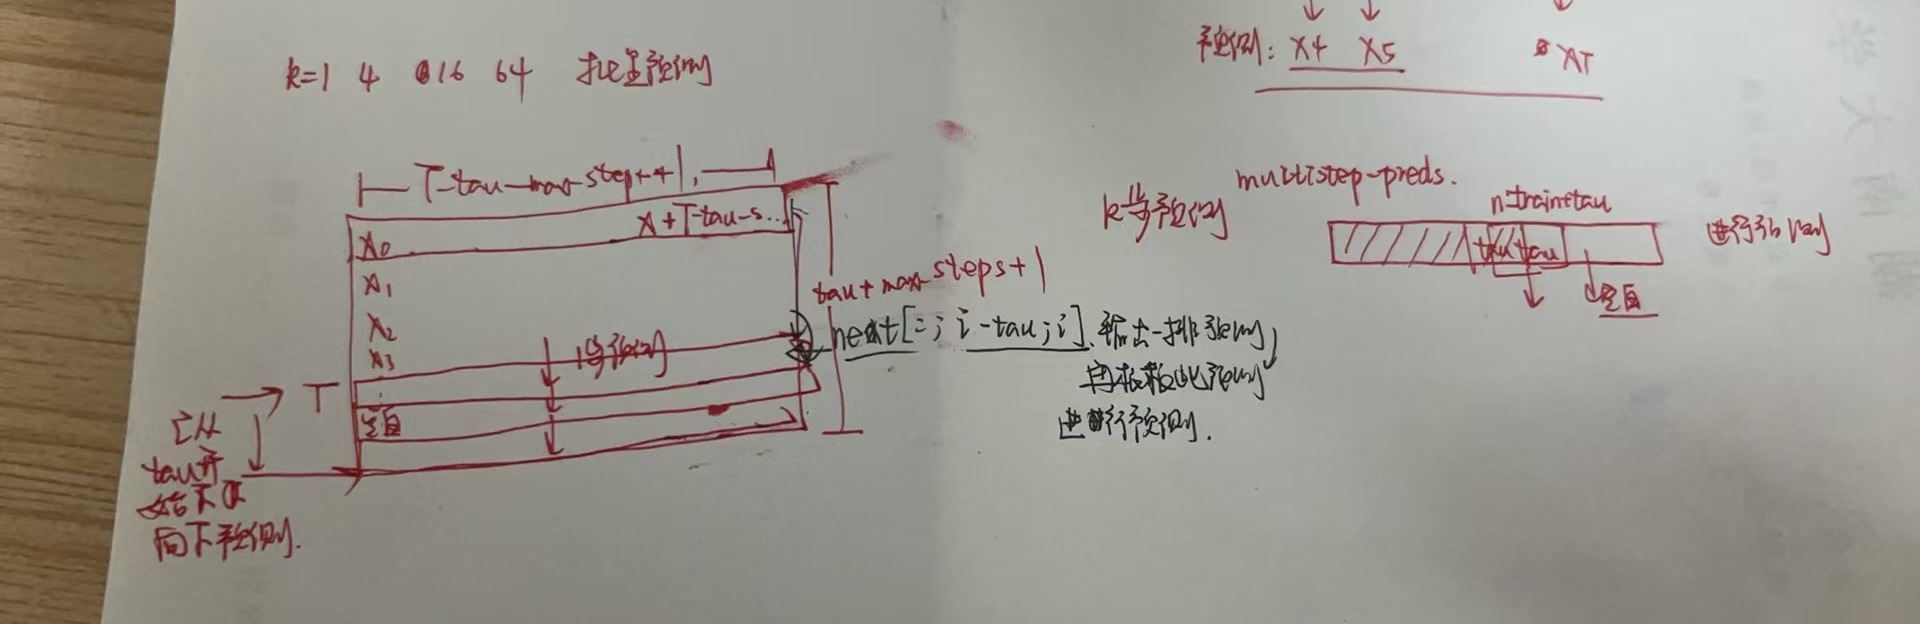 k=1 4 16 64 批量预测
预测: X4 X5 XT
T-tau-max-step++1
X0 X+T-tau-s...
X1
X2
X3
1步预测
空白
T
tau+max-steps+1
neat[:; i-tau; i] 输出一排预测,
再根据此预测
进行预测.
已从
tau开
始不断
向下预测.
multistep-preds.
k步预测
n-train+tau
tau tau
空白